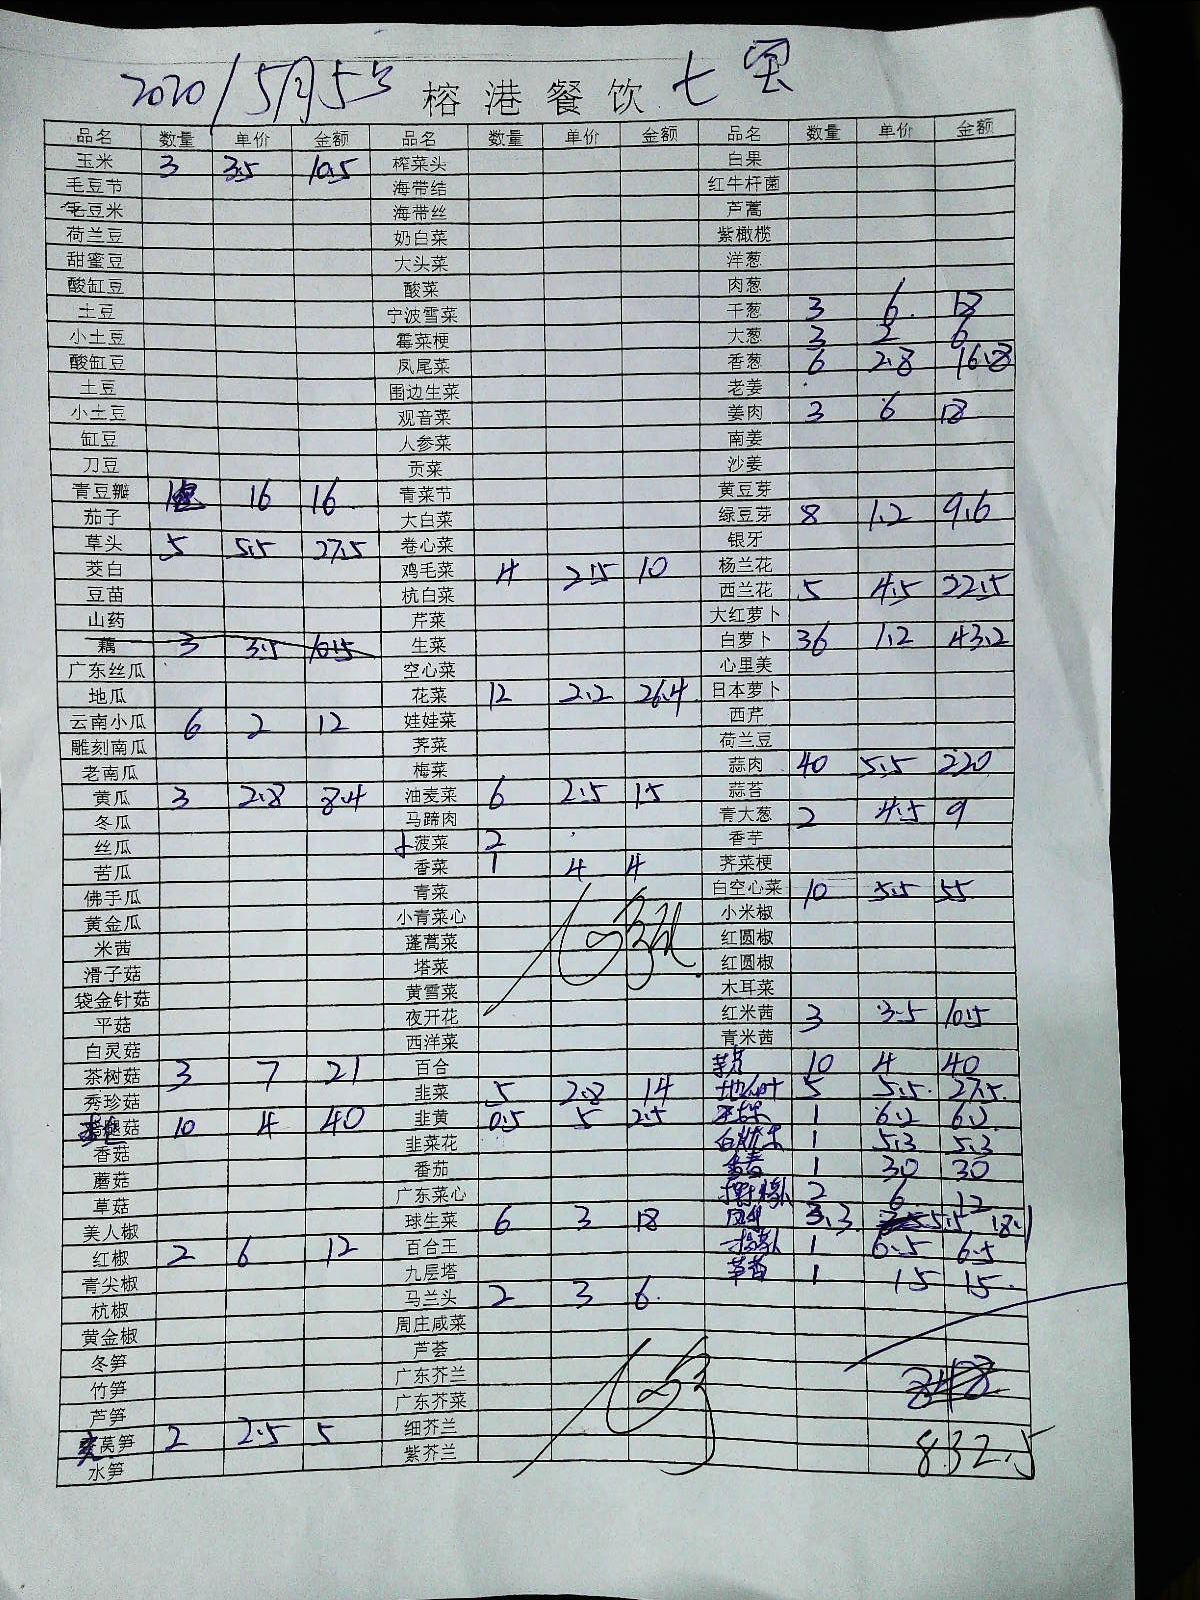 2020/5月5号 榕港餐饮 七宝
品名 数量 单价 金额 品名 数量 单价 金额 品名 数量 单价 金额
玉米 3 3.5 10.5 榨菜头 白果
毛豆节 海带结 红牛杆菌
毛豆米 海带丝 芦蒿
荷兰豆 奶白菜 紫橄榄
甜蜜豆 大头菜 洋葱
酸缸豆 酸菜 肉葱
土豆 宁波雪菜 干葱 3 6 18
小土豆 霉菜梗 大葱 3 2 6
酸缸豆 凤尾菜 香葱 6 2.8 16.8
土豆 围边生菜 老姜
小土豆 观音菜 姜肉 3 6 18
缸豆 人参菜 南姜
刀豆 贡菜 沙姜
青豆瓣 1 16 16 青菜节 黄豆芽
茄子 大白菜 绿豆芽 8 1.2 9.6
草头 5 5.5 27.5 卷心菜 银牙
茭白 鸡毛菜 4 2.5 10 杨兰花
豆苗 杭白菜 西兰花 5 4.5 22.5
山药 芹菜 大红萝卜
藕 3 3.5 10.5 生菜 白萝卜 36 1.2 43.2
广东丝瓜 空心菜 心里美
地瓜 花菜 12 2.2 26.4 日本萝卜
云南小瓜 6 2 12 娃娃菜 西芹
雕刻南瓜 荠菜 荷兰豆
老南瓜 梅菜 蒜肉 40 5.5 220
黄瓜 3 2.8 8.4 油麦菜 6 2.5 15 蒜苔
冬瓜 马蹄肉 青大葱 2 4.5 9
丝瓜 菠菜 2 香芋
苦瓜 香菜 1 4 4 荠菜梗
佛手瓜 青菜 白空心菜 10 5.5 55
黄金瓜 小青菜心 小米椒
米茜 蓬蒿菜 红圆椒
滑子菇 塔菜 红圆椒
袋金针菇 黄雪菜 木耳菜
平菇 夜开花 红米茜 3 3.5 10.5
白灵菇 西洋菜 青米茜
茶树菇 3 7 21 百合 10 4 40
秀珍菇 韭菜 5 2.8 14 5 5.5 27.5
菇 10 4 40 韭黄 0.5 5 2.5 1 6.2 6.2
香菇 韭菜花 1 5.3 5.3
蘑菇 番茄 1 30 30
草菇 广东菜心 2 6 12
美人椒 球生菜 6 3 18 3.3 5.5 18.1
红椒 2 6 12 百合王 1 6.5 6.5
青尖椒 九层塔 1 15 15
杭椒 马兰头 2 3 6
黄金椒 周庄咸菜
冬笋 芦荟
竹笋 广东芥兰
芦笋 广东芥菜
莴笋 2 2.5 5 细芥兰 832.5
水笋 紫芥兰